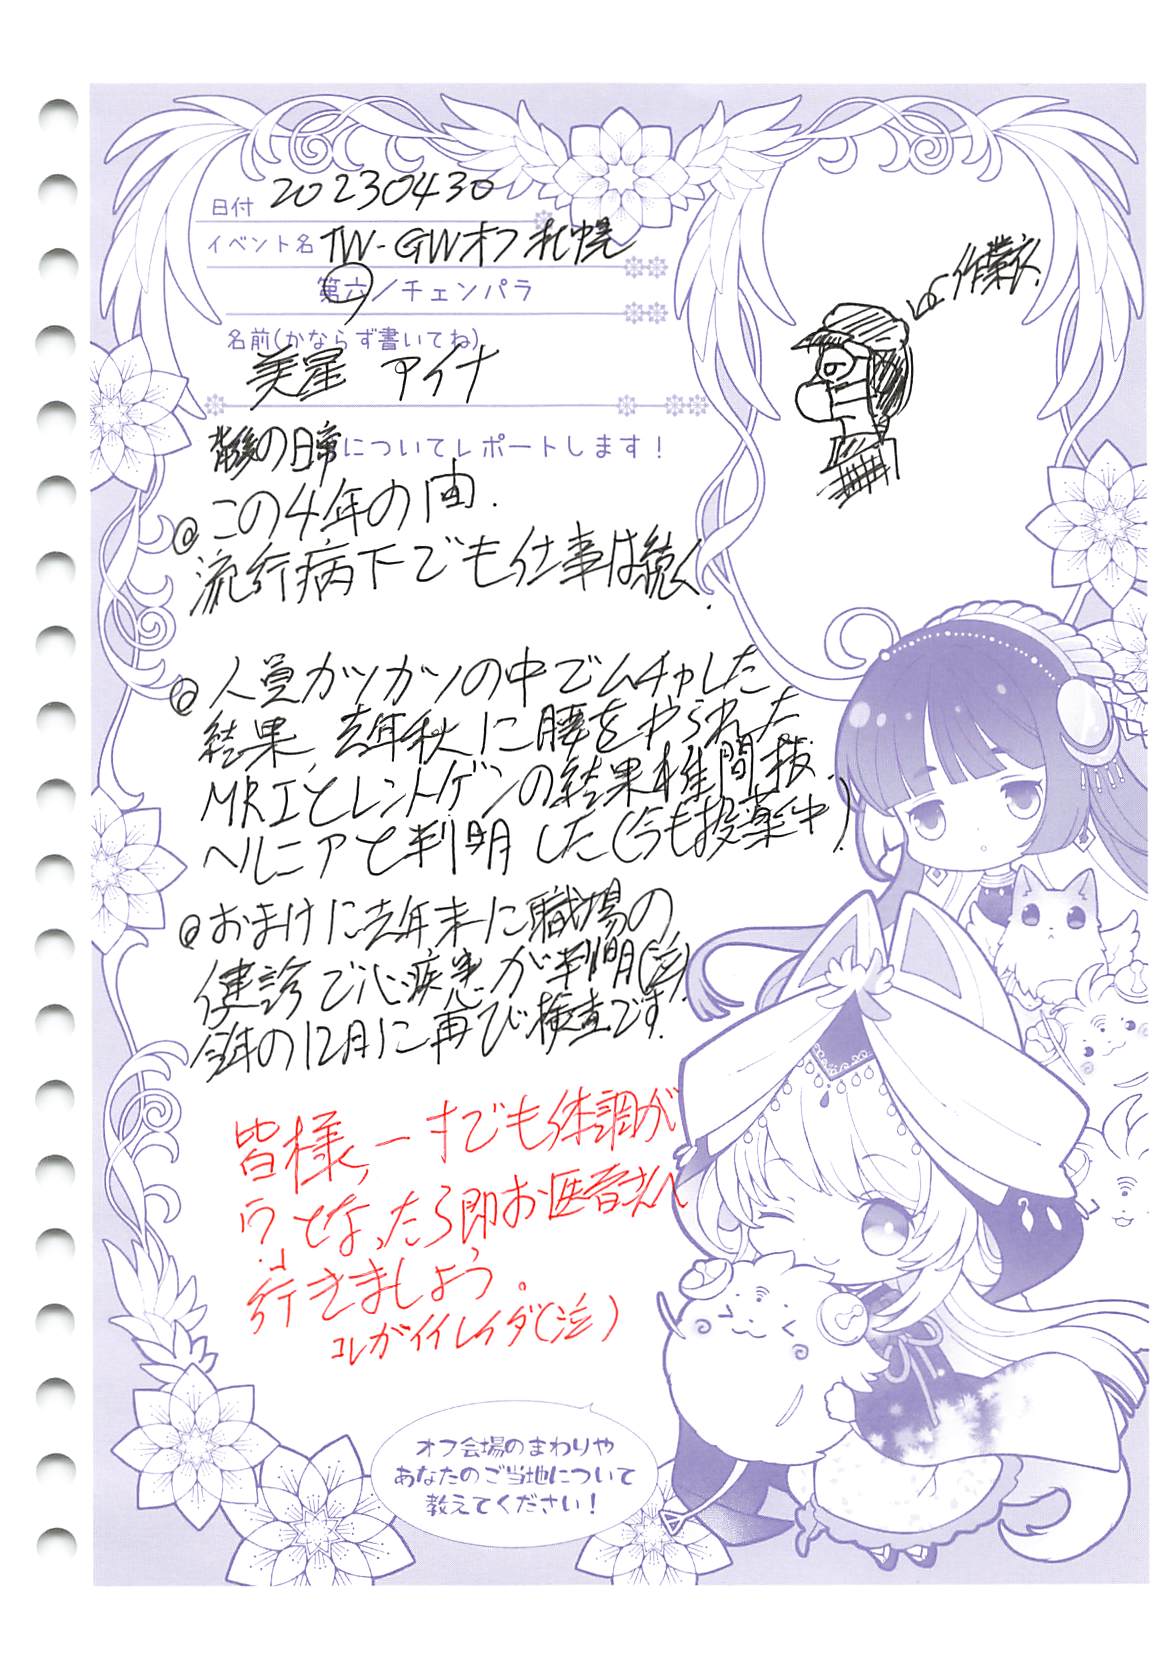 日付 20230430
イベント名 TW-GWオフ札幌
第六/チェンパラ
名前(かならず書いてね)
美星 アイナ
作業衣
背後の日常についてレポートします!
◎この4年の間.
流行病下でも仕事は続く.
◎人員カツカツの中でムチャした
結果、去年秋に腰をやられた
MRIとレントゲンの結果椎間板
ヘルニアと判明した(今も投薬中)
◎おまけに去年末に職場の
健診で心疾患が判明(泣)
今年の12月に再び検査です.
皆様、一寸でも体調が
ウ”となったら即お医者さんへ
行きましょう。
コレガイイレイダ(泣)
オフ会場のまわりや
あなたのご当地について
教えてください!